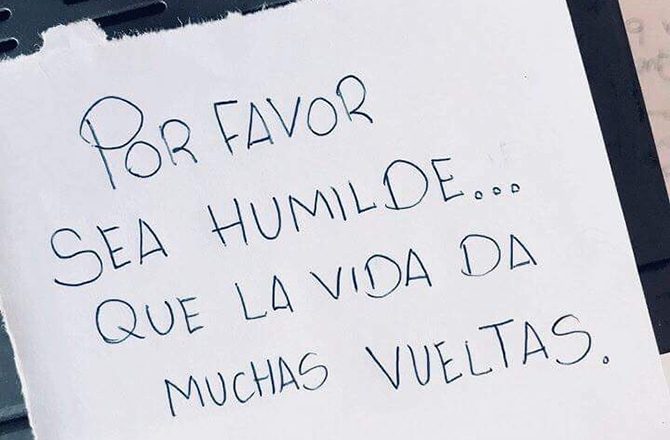 POR FAVOR
SEA HUMILDE...
QUE LA VIDA DA
MUCHAS VUELTAS.